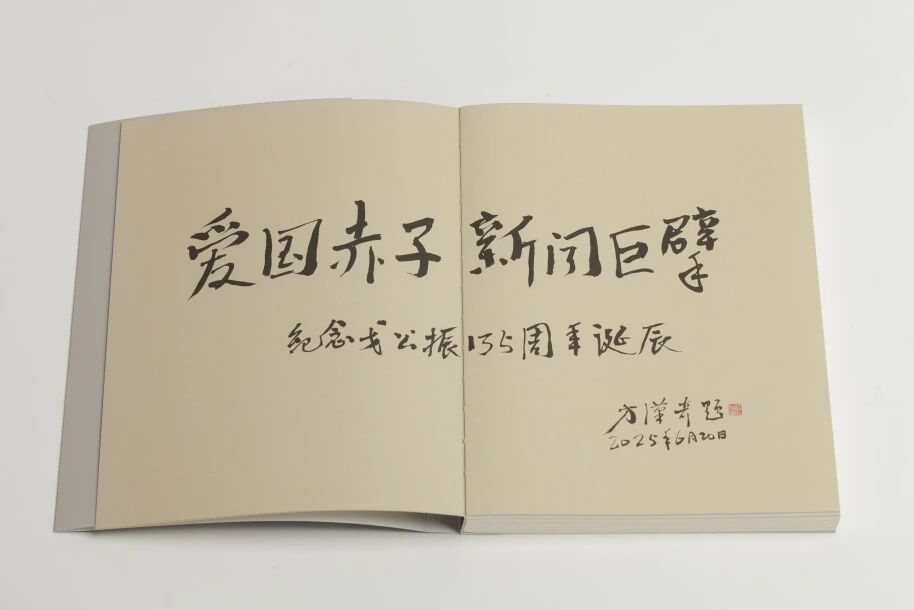 爱国赤子 新闻巨擘
纪念戈公振135周年诞辰
方漢奇题
2025年6月20日